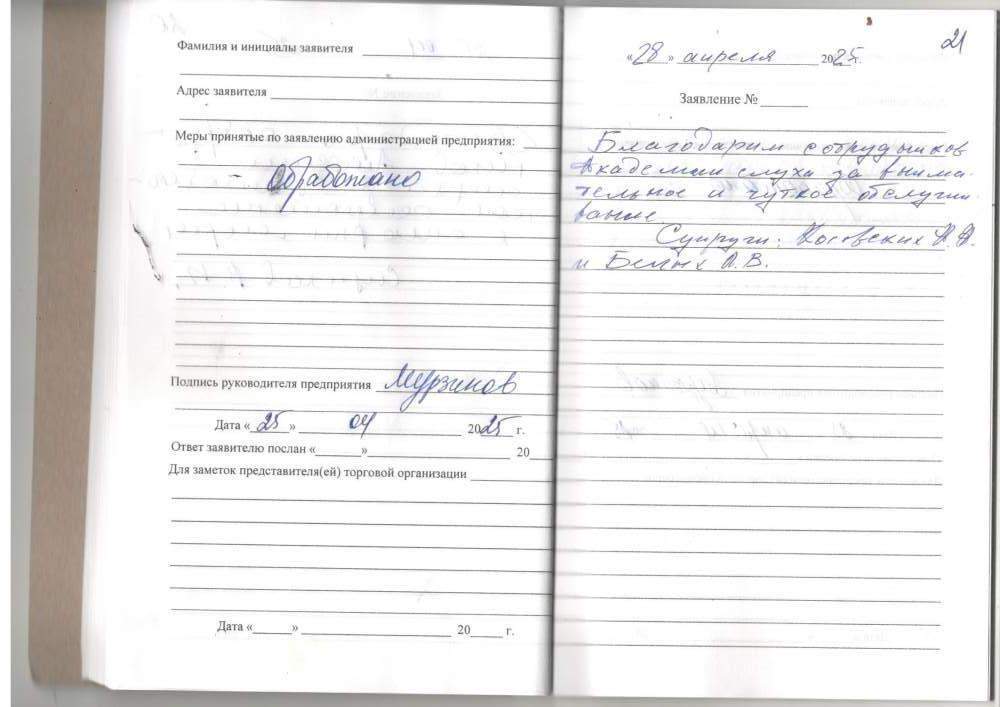 Фамилия и инициалы заявителя
Адрес заявителя
Меры принятые по заявлению администрацией предприятия:
- Обработано
Подпись руководителя предприятия Мурзинов
Дата «25» 04 2025 г.
Ответ заявителю послан «» 20
Для заметок представителя(ей) торговой организации
Дата «» 20 г.
21
«28» апреля 2025г.
Заявление №
Благодарим сотрудников
Академии слуха за внима-
тельное и чуткое обслужи
вание.
Супруги: А.
и Белых А.В.